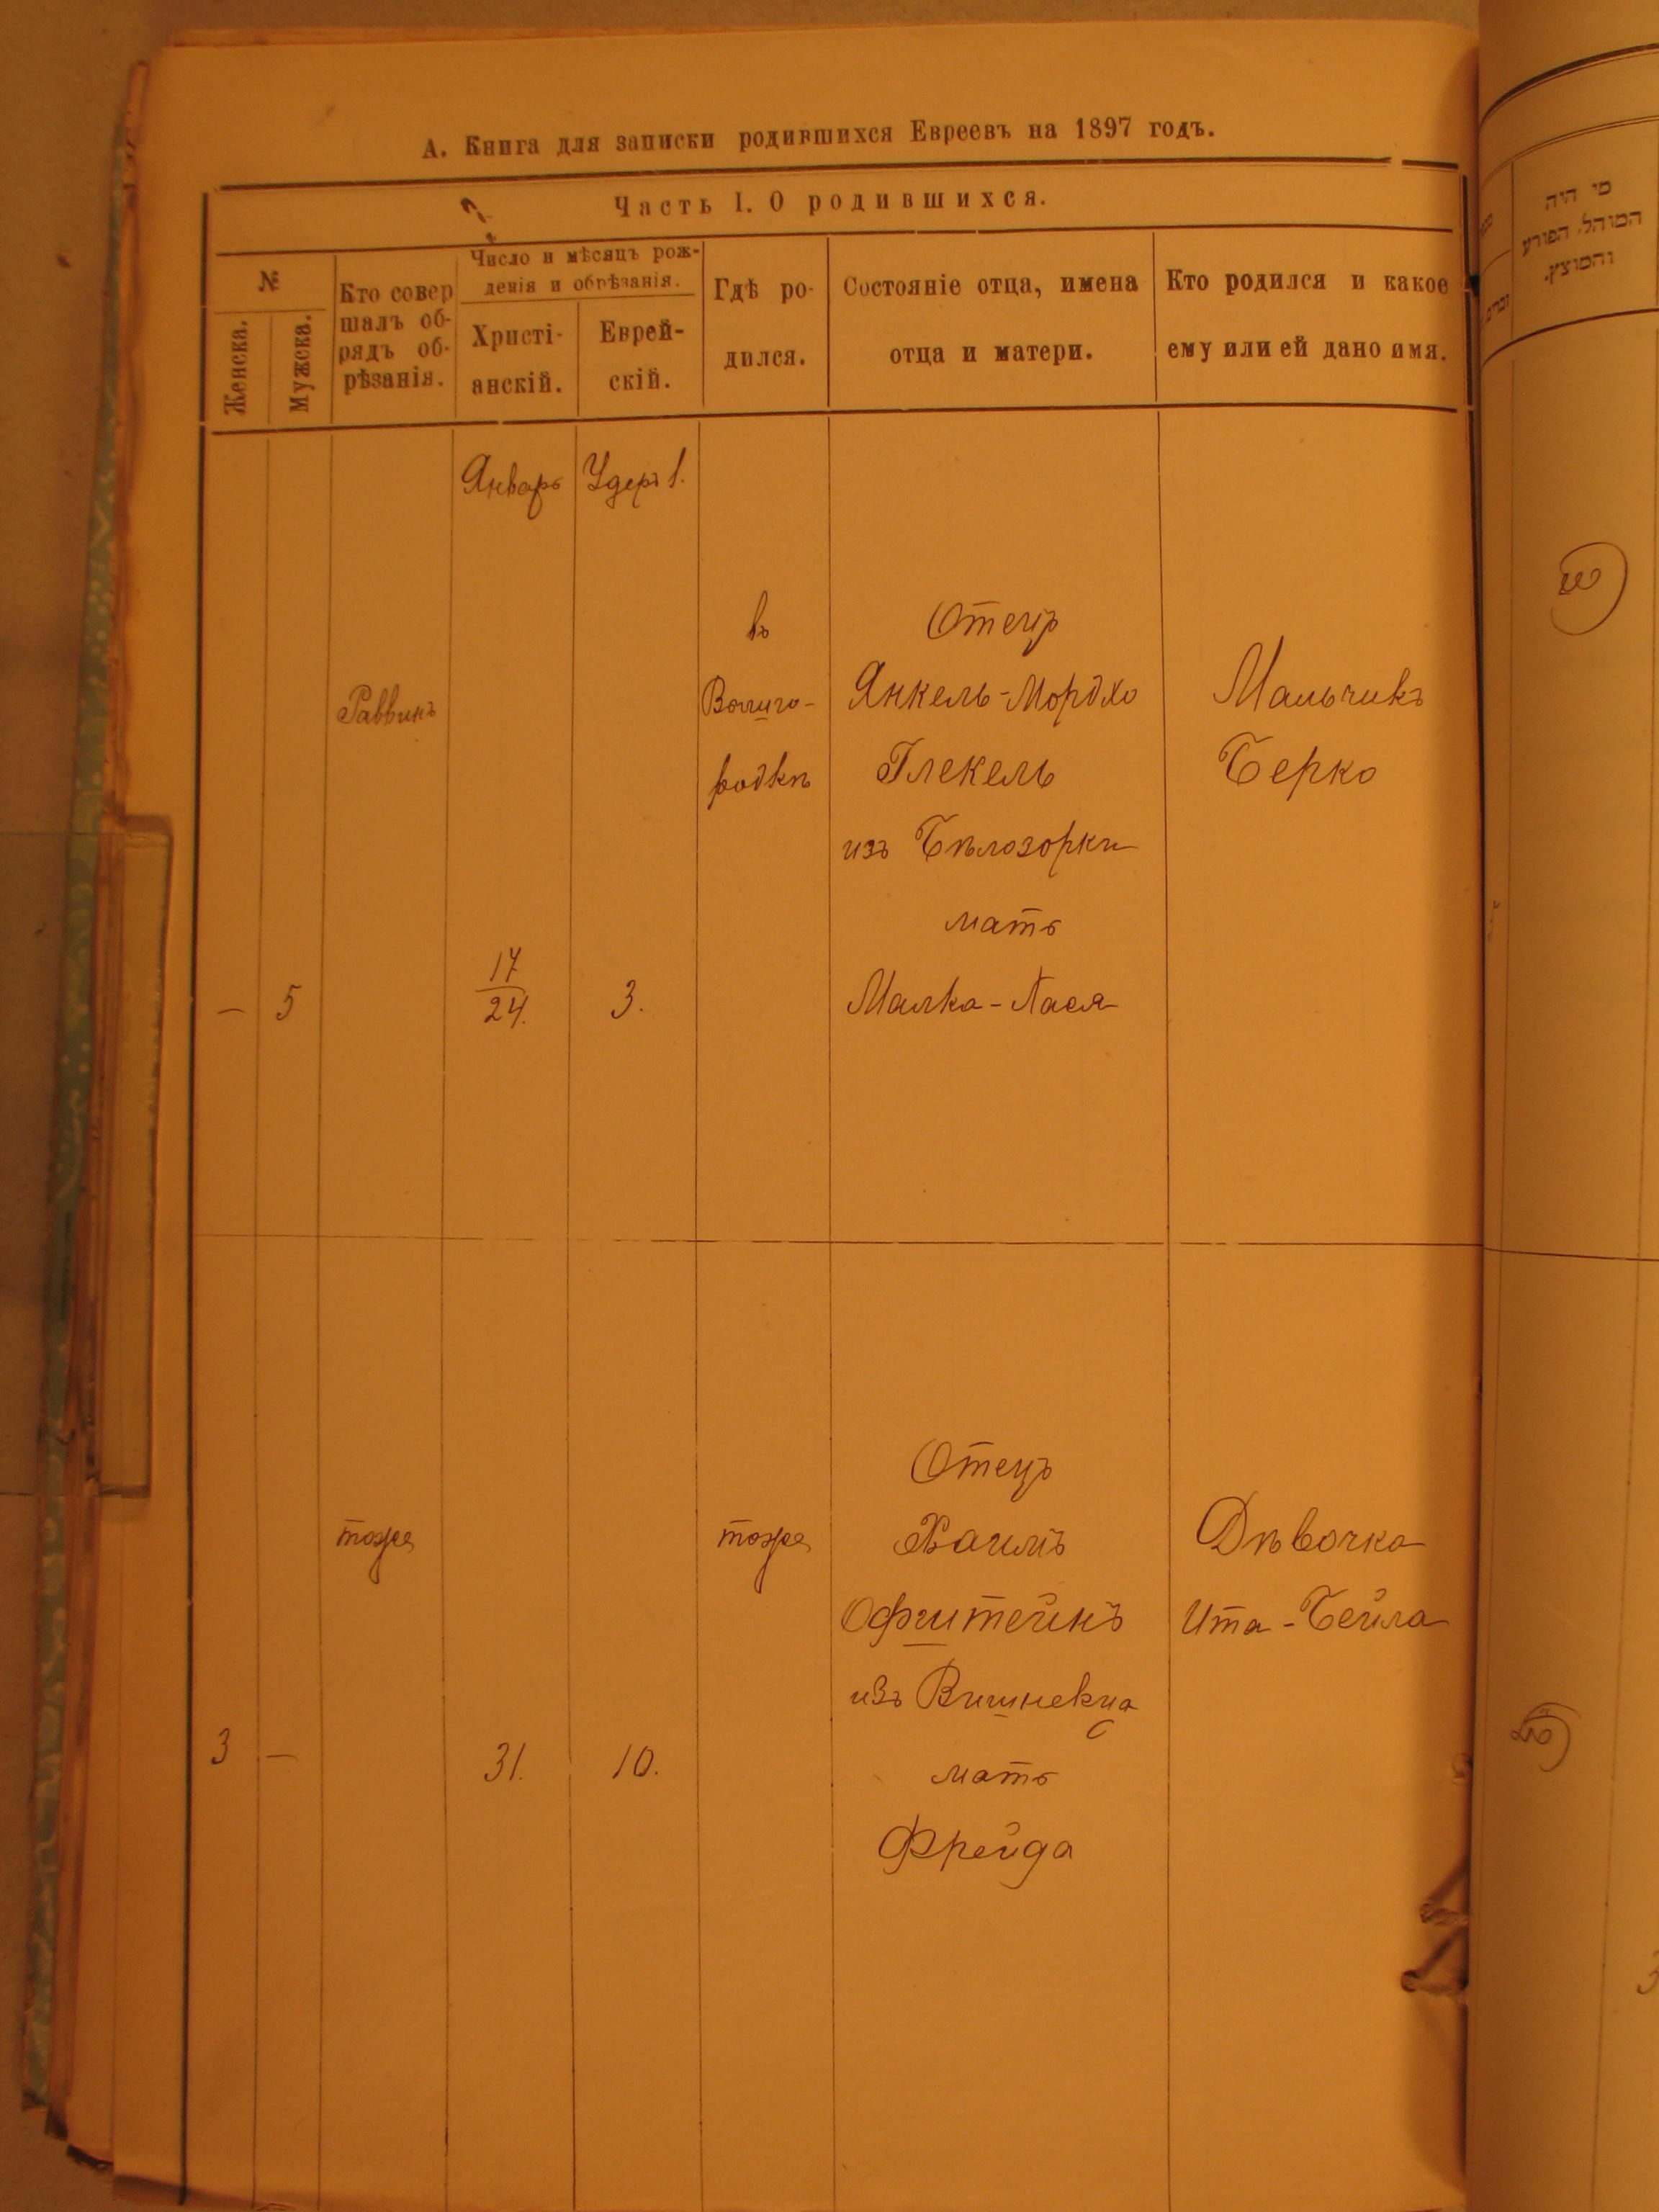 А. Книга для записки родившихся Евреевъ на 1897 годъ.
Часть I. О родившихся.
№
Женска.
Мужска.
Кто совер
шалъ об-
рядъ об-
рѣзанія.
Число и мѣсяцъ рож-
денія и обрѣзанія.
Христі-
анскій.
Еврей-
скій.
Гдѣ ро-
дился.
Состояніе отца, имена
отца и матери.
Кто родился и какое
ему или ей дано имя.
מי היה
המוהל, הפורע
והמוצץ.
Январь
—
5
Раввинъ
17
24.
3.
въ
родкѣ
Отецъ
Янкель-Мордхо
Глекель
изъ Бѣлозорки
мать
Малка-Лася
Мальчикъ
Берко
3
—
тоже
31.
10.
тоже
Отецъ
Хаимъ
Офштейнъ
изъ Вишневца
мать
Фрейда
Дѣвочка
Ита-Бейла